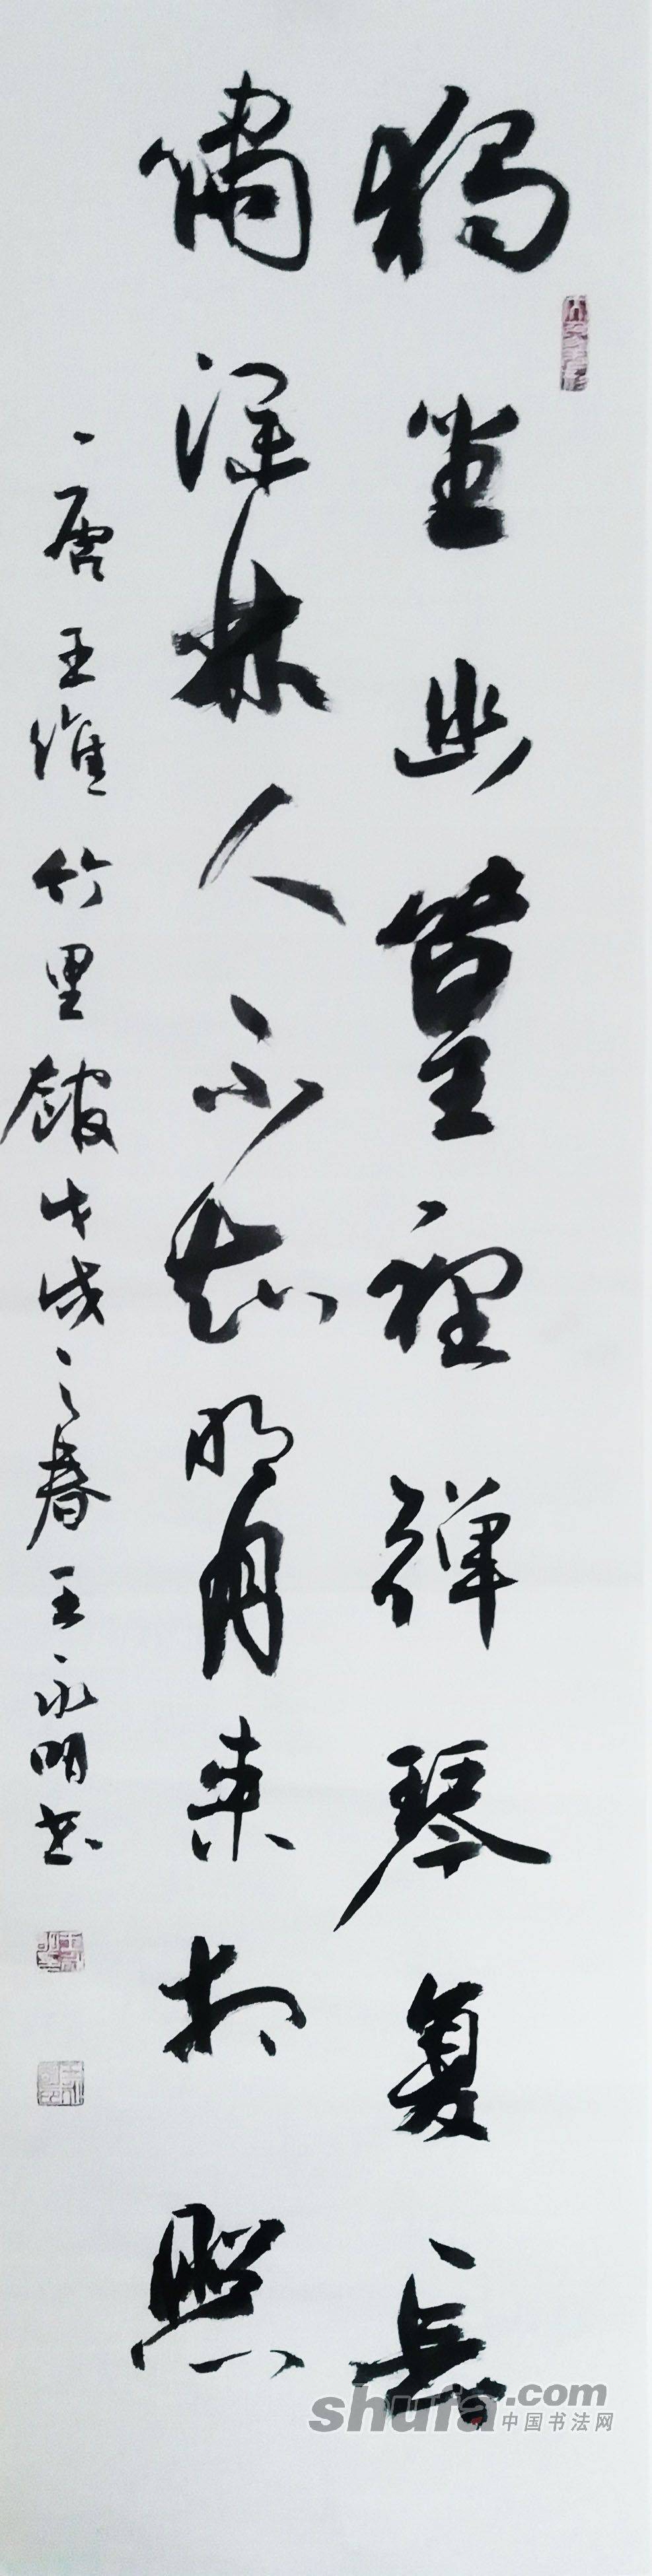 獨坐幽篁裡彈琴复長
嘯深林人不知明月来相照
唐王維竹里館戊戌之春王永明书
shufa.com
中国书法网